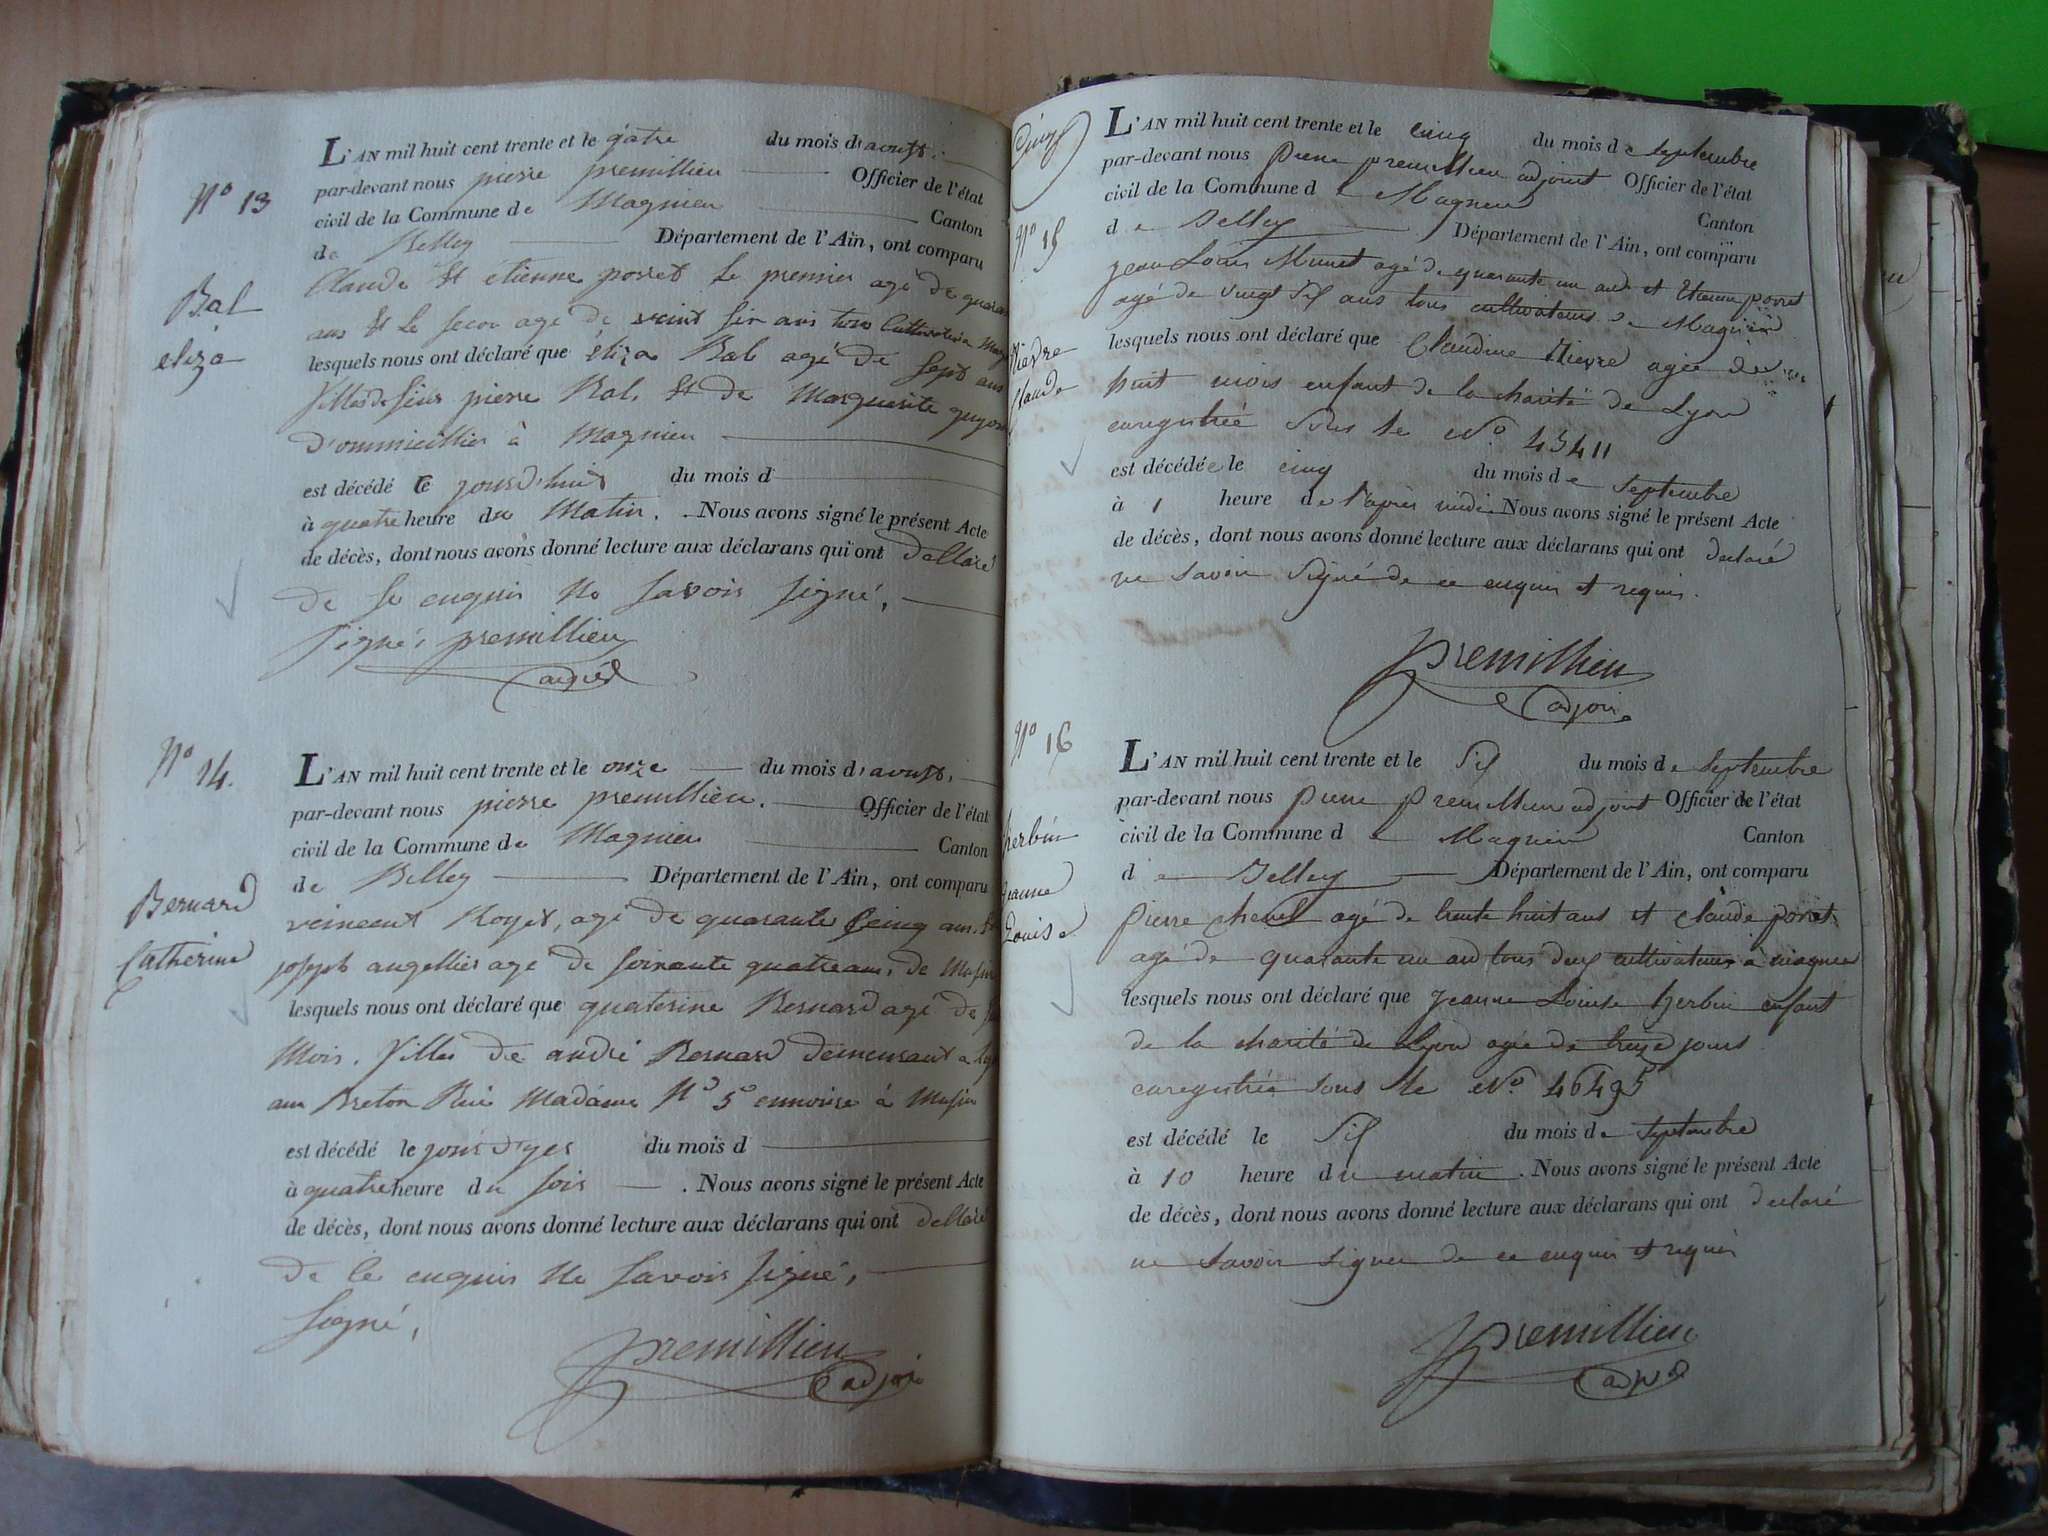 N° 13
Bal
eliza
L'AN mil huit cent trente et le qatre du mois d'aoust.
par-devant nous pierre premillieu Officier de l'état
civil de la Commune de Magnieu Canton
de Belley Département de l'Ain, ont comparu
Claude & étienne porret le premier agé de quaran
ans & le secon agé de veint six ans tous Cultivateur a
lesquels nous ont déclaré que éliza Bal agé de sept ans
filles de sieur pierre Bal & de Marguerite guyon
d'ommicillier à Magnieu
est décédé le jourd'huit du mois d
à quatre heure du Matin. Nous avons signé le présent Acte
de décès, dont nous avons donné lecture aux déclarans qui ont dellaré
de se enquis ne savoir signé,
signé, premillieu
N° 14.
Bernard
Catherine
L'AN mil huit cent trente et le onze du mois d'aoust,
par-devant nous pierre premillieu. Officier de l'état
civil de la Commune de Magnieu Canton
de Belley Département de l'Ain, ont comparu
veincent Royet, agé de quarante ceinq ans. &
joseph angellier agé de soixante quatre ans, de Musin
lesquels nous ont déclaré que quaterine Bernard agé de
Mois. filles de andré Bernard demeurant a
au Breton Rue Madame N° 5 ennourise à Musin
est décédé le jour d'yer du mois d
à quatre heure du soir . Nous avons signé le présent Acte
de décès, dont nous avons donné lecture aux déclarans qui ont dellaré
de le enquis ne savoir signé,
signé,
premillieu
adjoin
Cinq
N° 15
Mievre
Claude
L'AN mil huit cent trente et le cinq du mois de septembre
par-devant nous Pierre premillieu adjoint Officier de l'état
civil de la Commune de Magnieu Canton
de Belley Département de l'Ain, ont comparu
jean Louis Munet agé de quarante un ans et Etienne porret
agé de vingt six ans tous cultivateurs de Magnieu
lesquels nous ont déclaré que Claudine Mievre agée de
huit mois enfant de la charité de Lyon
enregistrée sous le N° 45411
est décédée le cinq du mois de septembre
à 1 heure de l'après midi Nous avons signé le présent Acte
de décès, dont nous avons donné lecture aux déclarans qui ont declaré
ne savoir signé de ce enquis et requis.
premillieu
adjoin
N° 16
herbin
jeanne
Louise
L'AN mil huit cent trente et le six du mois de septembre
par-devant nous pierre premillieu adjoint Officier de l'état
civil de la Commune de Magnieu Canton
de Belley Département de l'Ain, ont comparu
pierre chevel agé de trente huit ans et claude porret
agé de quarante un an tous deux cultivateurs a magnieu
lesquels nous ont déclaré que jeanne Louise herbin enfant
de la charité de Lyon agée de treize jours
enregistrée sous le N° 46495
est décédé le six du mois de septembre
à 10 heure du matin . Nous avons signé le présent Acte
de décès, dont nous avons donné lecture aux déclarans qui ont declaré
ne savoir signer de ce enquis et requis
premillieu